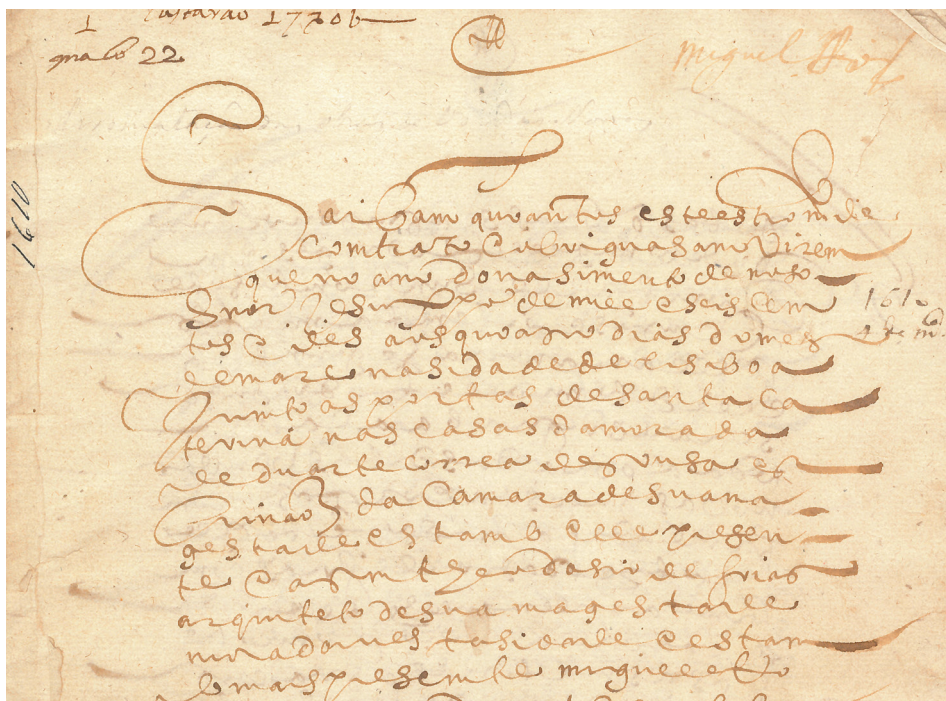 1
maço 22
Miguel
1610
Saibam quoantos este estromto de
Comtrato E obriguasam Virem
que no ano do nasimento de noso
Snor Jesu xpo de mill e seis cem
tos E des aos quoatro dias do mes
de março na sidade de lisboa
Junto as portas de santa ca
terina nas casas da morada
de duarte correa de sousa es
Crivão da Camara de sua ma
gestade estamdo elle presen
te E asim theodosio de frias
arquiteto de sua magestade
morador nesta sidade e estam
do mais presemte miguel
1610
4 de